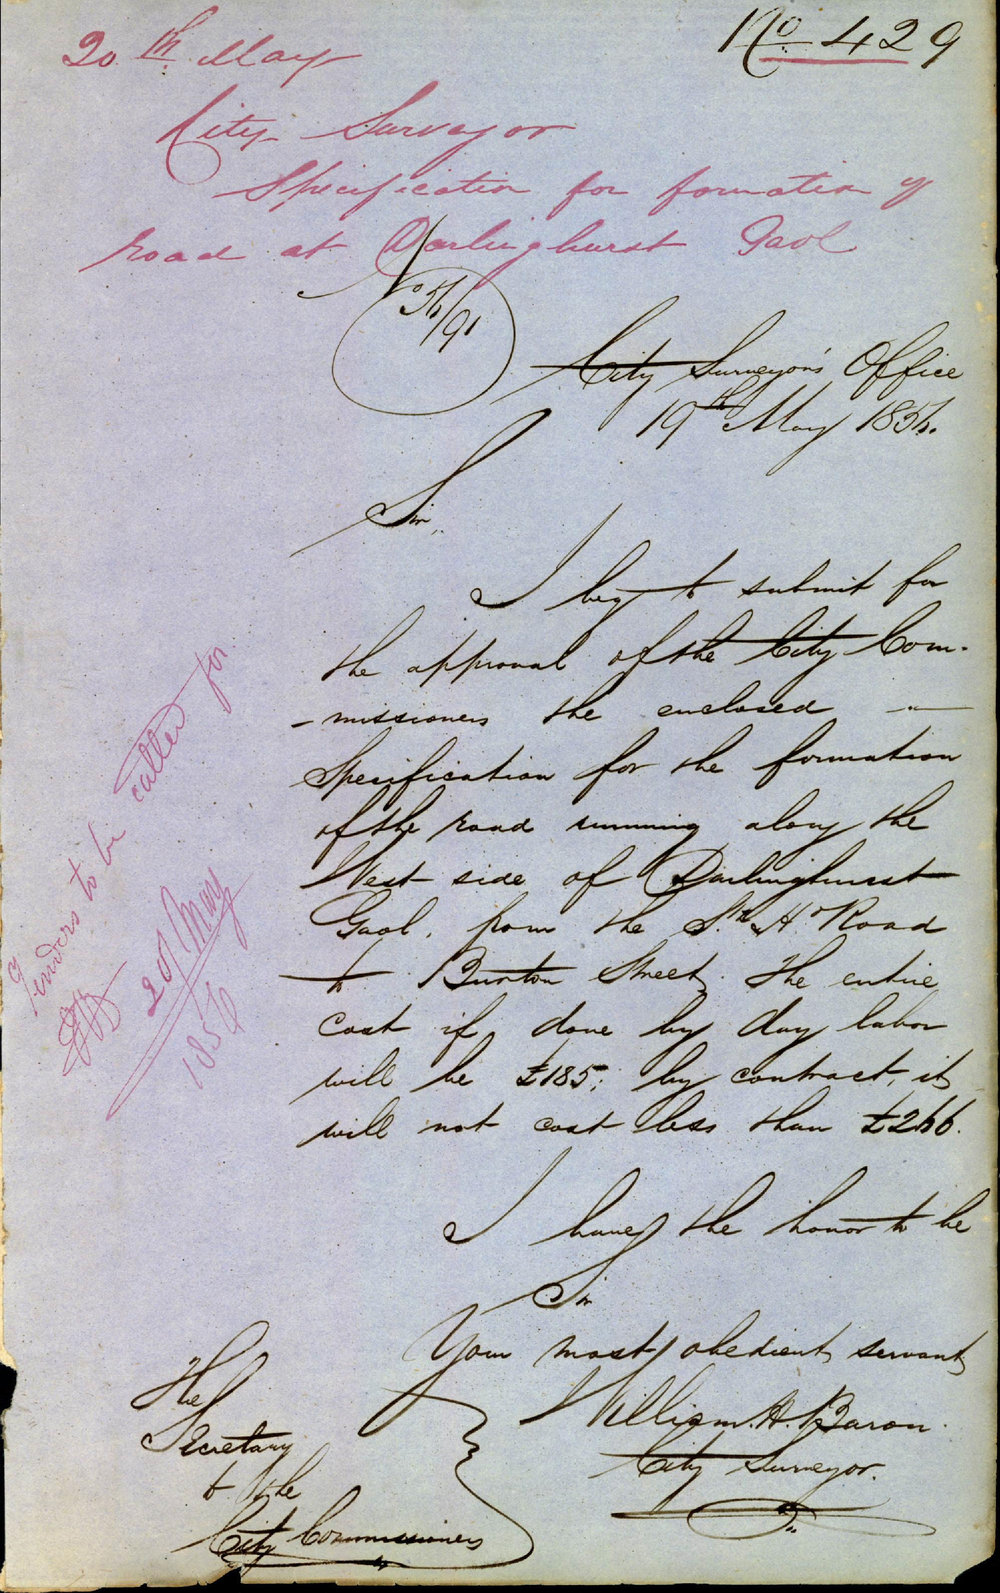 No 429
20th May
City Surveyor
Specification for formation of
road at Darlinghurst Gaol
56/91
City Surveyor's Office
19th May 1856.
Sir,
I beg to submit for
the approval of the City Com-
-missioners the enclosed
Specification for the formation
of the road running along the
West side of Darlinghurst
Gaol, from the S. H. Road
to Burton Street. The entire
cost if done by day labor
will be £185; by contract, it
will not cost less than £266.
I have the honor to be
Sir
Your most obedient servant
William. H. Baron.
City Surveyor.
The
Secretary
to the
City Commissioners
Tenders to be called for
20 May
1856